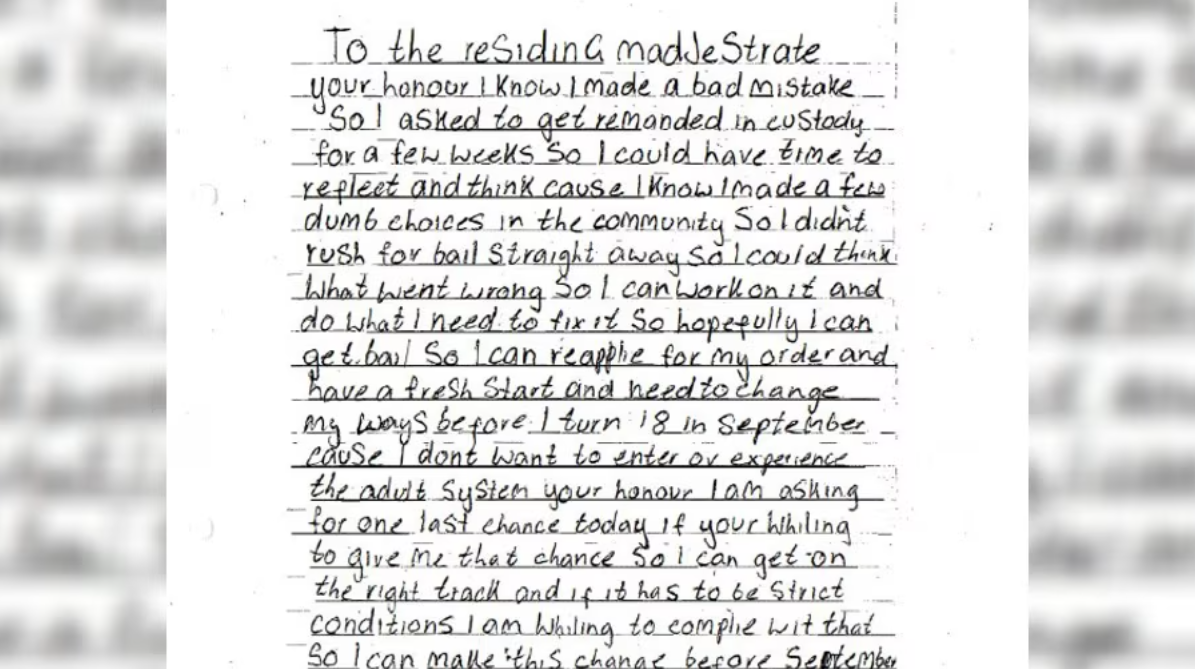 To the reSidinG madJeStrate
your honour I Know I made a bad mistake
So I asked to get remanded in custody
for a few weeks So I could have time to
reflect and think cause I Know I made a few
dumb choices in the community So I didn't
rush for bail Straight away So I could think
What went wrong So I can work on it and
do what I need to fix it So hopefully I can
get bail So I can reapplie for my order and
have a fresh Start and need to change
my ways before I turn 18 in September
cause I dont want to enter or experience
the adult System your honour I am asking
for one last chance today if your Whiling
to give me that chance So I can get on
the right track and if it has to be Strict
conditions I am Whiling to complie wit that
So I can make this change before September